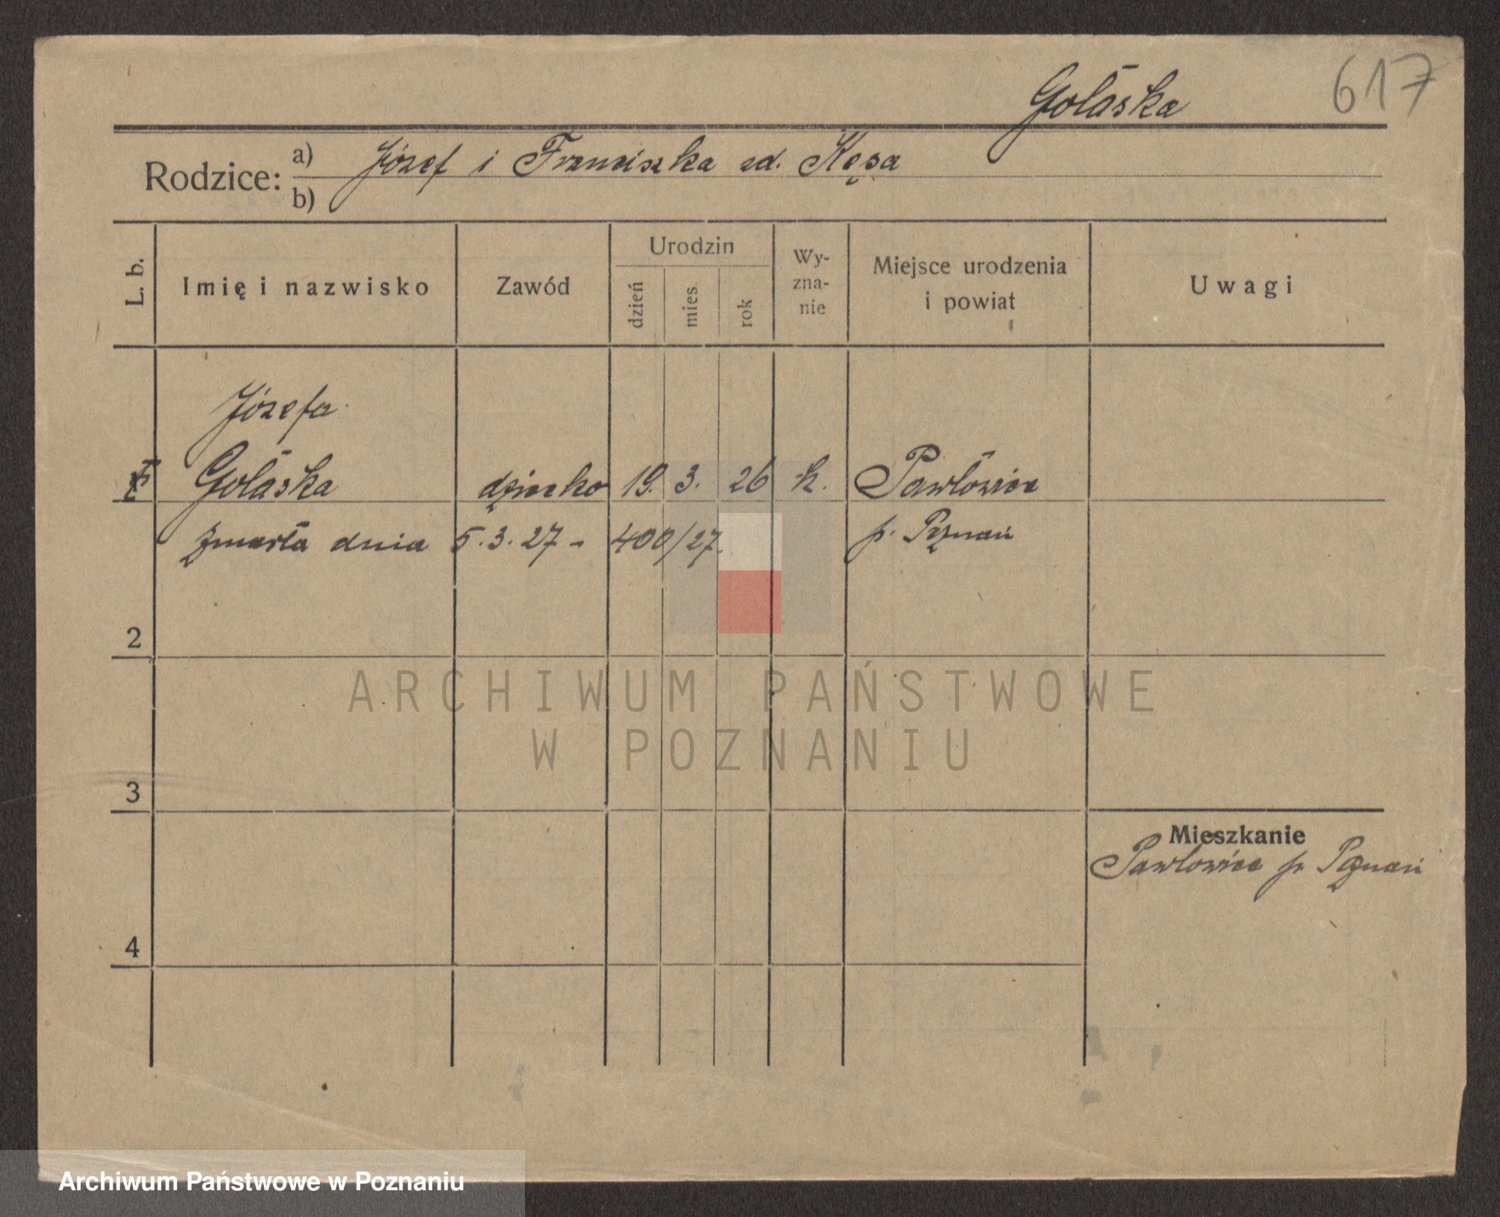 617
Gołaska
Rodzice: a) Józef i Franciszka zd. Kęsa
b)
L. b. Imię i nazwisko Zawód Urodzin dzień mies. rok Wy-zna-nie Miejsce urodzenia i powiat Uwagi
Józefa
Gołaska dziecko 19. 3. 26 k. Pawłowice
zmarła dnia 5.3.27 - 400/27. p. Poznań
2
ARCHIWUM PAŃSTWOWE
W POZNANIU
3
Mieszkanie
Pawłowice p. Poznań
4
Archiwum Państwowe w Poznaniu